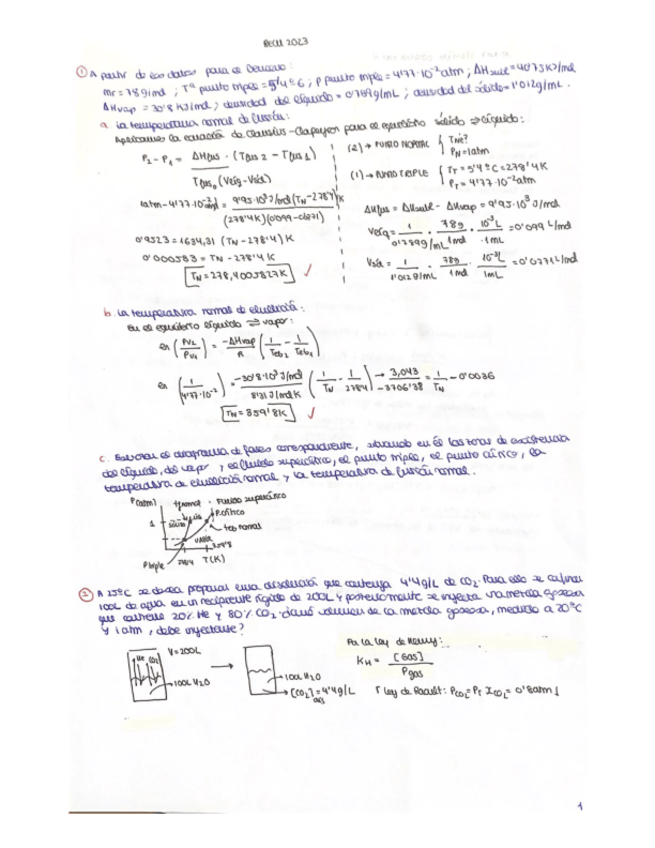 RECU 2023
① A partir de esos datos para el Benceno:
mr = 78g/mol ; Tª punto triple = 5'4ºC ; P punto triple = 4'77·10⁻² atm ; ΔHsubl = 40'75 KJ/mol
ΔHvap = 30'8 KJ/mol ; densidad del líquido = 0'789g/mL ; densidad del sólido = 1'012g/mL.
a. La temperatura normal de fusión:
Aplicamos la ecuación de Clausius-Clapeyron para el equilibrio sólido ⇌ líquido:
P₂ - P₁ = ΔHfus · (Tfus 2 - Tfus 1)
Tfus₁ (Vlíq - Vsól)
(2) → PUNTO NORMAL { TN é?
PN = 1atm
(1) → PUNTO TRIPLE { TT = 5'4ºC = 278'4K
PT = 4'77·10⁻² atm
1atm - 4'77·10⁻² atm = 9'95·10³ J/mol (TN - 278'4)K
(278'4K)(0'099 - 0'0771)
ΔHfus = ΔHsubl - ΔHvap = 9'95·10³ J/mol
Vlíq = 1 / 0'789g/mL · 78g / 1mol · 10⁻³L / 1mL = 0'099 L/mol
0'9523 = 1634,31 (TN - 278'4) K
0'000583 = TN - 278'4K
Vsól = 1 / 1'012g/mL · 78g / 1mol · 10⁻³L / 1mL = 0'0771 L/mol
TN = 278,4005827K ✓
b. La temperatura normal de ebullición:
En el equilibrio líquido ⇌ vapor:
ln (Pv₂ / Pv₁) = -ΔHvap / R (1 / Teb₂ - 1 / Teb₁)
ln (1 / 4'77·10⁻²) = -30'8·10³ J/mol / 8'31 J/molK (1 / TN - 1 / 278'4) → 3,043 / -3706'38 = 1 / TN - 0'0036
TN = 359'8K ✓
c. Esbozar el diagrama de fases correspondiente, situando en él las zonas de existencia
del líquido, del vapor y el fluido supercrítico, el punto triple, el punto crítico, la
temperatura de ebullición normal y la temperatura de fusión normal.
P(atm) tf normal · Fluido supercrítico
P. crítico
1 sólido líquido
teb normal
vapor
359'8
P triple 278'4 T(K)
② A 25ºC se desea preparar una disolución que contenga 4'4g/L de CO₂. Para ello se cogen
100L de agua en un recipiente rígido de 200L y posteriormente se inyecta una mezcla gaseosa
que contiene 20% He y 80% CO₂. ¿Qué volumen de la mezcla gaseosa, medido a 20ºC
y 1 atm, debe inyectarse?
V = 200L
He CO₂
100L H₂O
100L H₂O
[CO₂] = 4'4g/L
Por la ley de Henry:
KH = [Gas]
Pgas
Ley de Raoult: PCO₂ = PT XCO₂ = 0'8atm
1